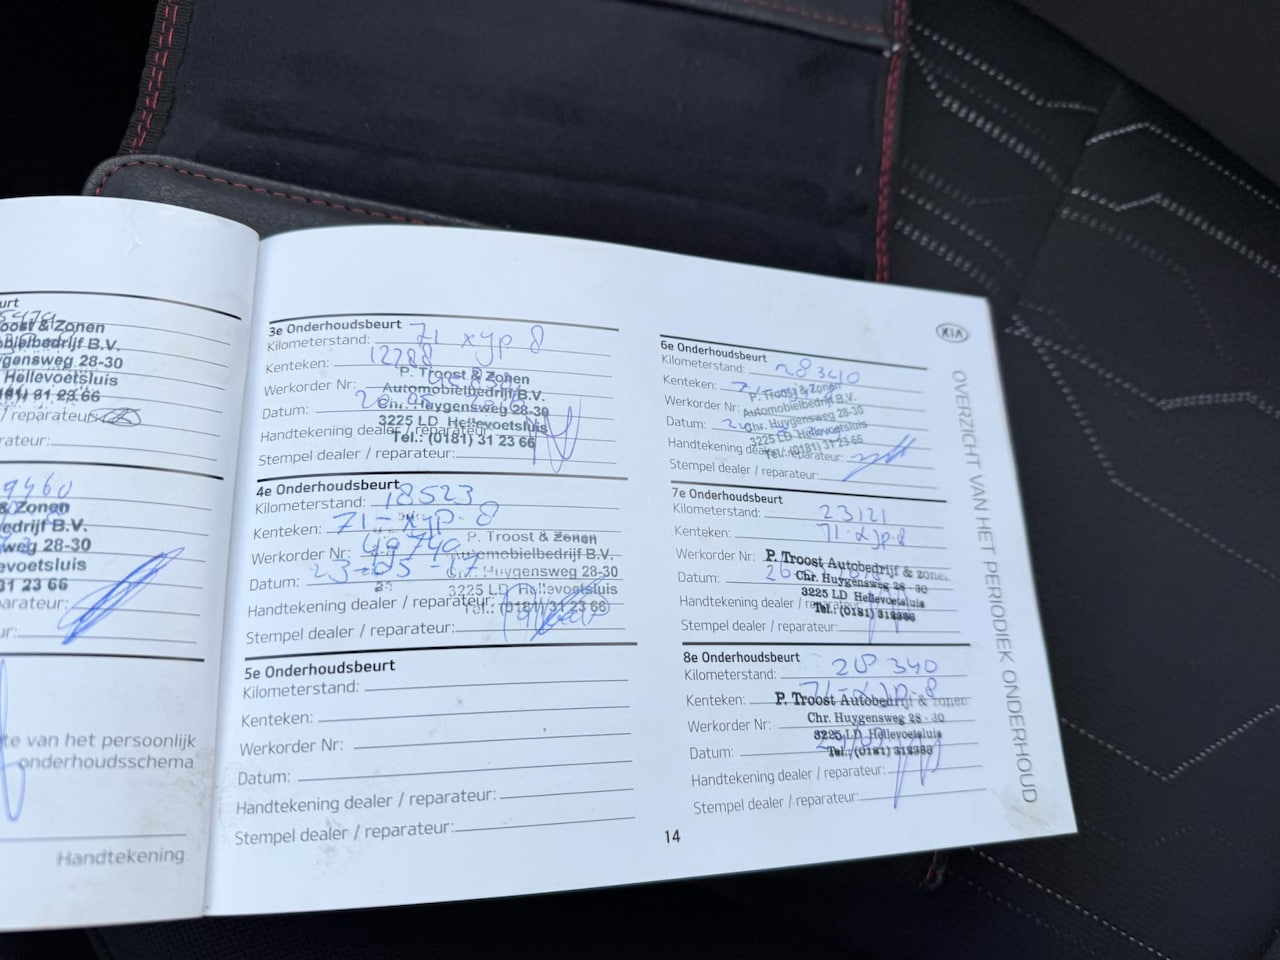 urt
5474
oost & Zonen
obielbedrijf B.V.
ygensweg 28-30
Hellevoetsluis
181) 31 23 66
/ reparateur:
rateur:
9460
& Zonen
edrijf B.V.
weg 28-30
evoetsluis
31 23 66
parateur:
ur:
te van het persoonlijk
onderhoudsschema
Handtekening
3e Onderhoudsbeurt
Kilometerstand: 71 xjp 8
Kenteken: 12288
P. Troost & Zonen
Werkorder Nr:
Automobielbedrijf B.V.
Chr. Huygensweg 28-30
Datum:
3225 LD Hellevoetsluis
Handtekening dealer / reparateur:
Tel.: (0181) 31 23 66
Stempel dealer / reparateur:
4e Onderhoudsbeurt
Kilometerstand: 18523
Kenteken: 71-xjp-8
P. Troost & Zonen
Werkorder Nr: 49740
Automobielbedrijf B.V.
Datum: 23-05-17
Chr. Huygensweg 28-30
3225 LD Hellevoetsluis
Handtekening dealer / reparateur:
Tel.: (0181) 31 23 66
Stempel dealer / reparateur:
5e Onderhoudsbeurt
Kilometerstand:
Kenteken:
Werkorder Nr:
Datum:
Handtekening dealer / reparateur:
Stempel dealer / reparateur:
6e Onderhoudsbeurt
Kilometerstand: 28340
Kenteken:
P. Troost & Zonen
Werkorder Nr:
Automobielbedrijf B.V.
Datum:
Chr. Huygensweg 28-30
3225 LD Hellevoetsluis
Handtekening dealer / reparateur:
Tel.: (0181) 31 23 66
Stempel dealer / reparateur:
7e Onderhoudsbeurt
Kilometerstand: 23121
Kenteken: 71-xjp-8
Werkorder Nr:
P. Troost Autobedrijf & zonen
Datum: 26
Chr. Huygensweg 28 - 30
3225 LD Hellevoetsluis
Handtekening dealer / reparateur:
Tel. (0181) 312366
Stempel dealer / reparateur:
8e Onderhoudsbeurt
Kilometerstand: 28 340
Kenteken: 71-xjp-8
P. Troost Autobedrijf & zonen
Werkorder Nr:
Chr. Huygensweg 28 - 30
3225 LD Hellevoetsluis
Datum:
Tel. (0181) 312366
Handtekening dealer / reparateur:
Stempel dealer / reparateur:
14
KIA
OVERZICHT VAN HET PERIODIEK ONDERHOUD